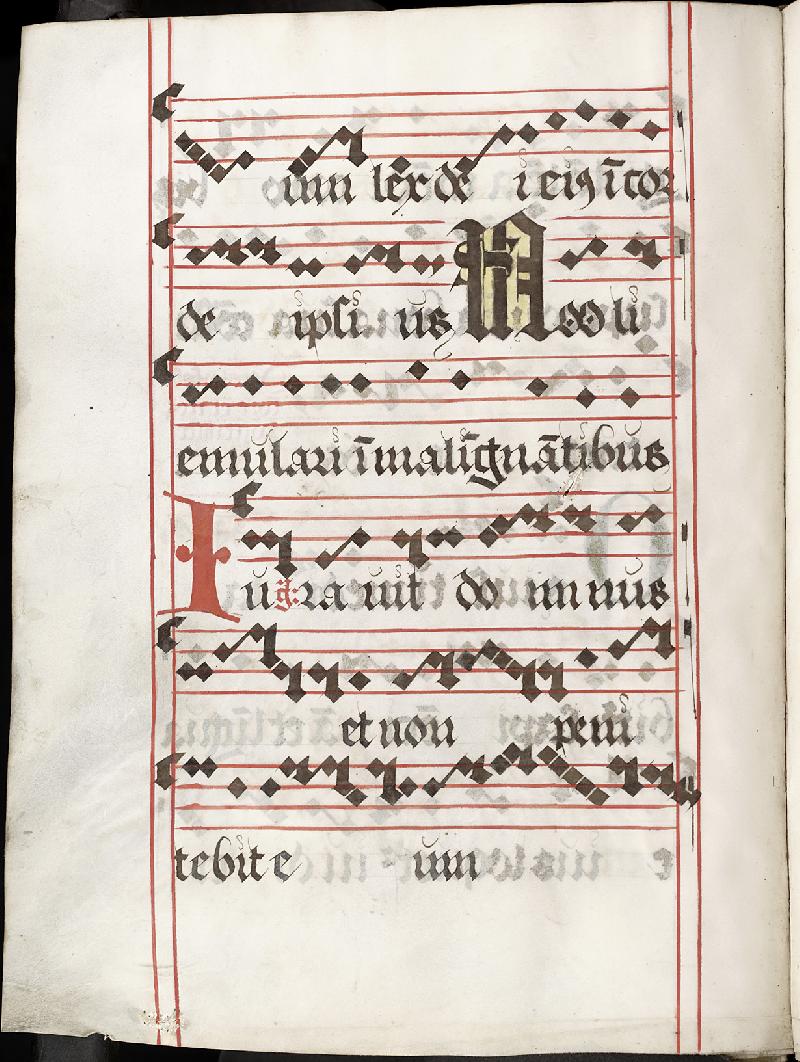 um lex de i eiꝰ ī cor
de ipsi us Noo li
emulari ī malīgnātibus
Iu g: ra uit do mi nus
et non peni
tebit e um